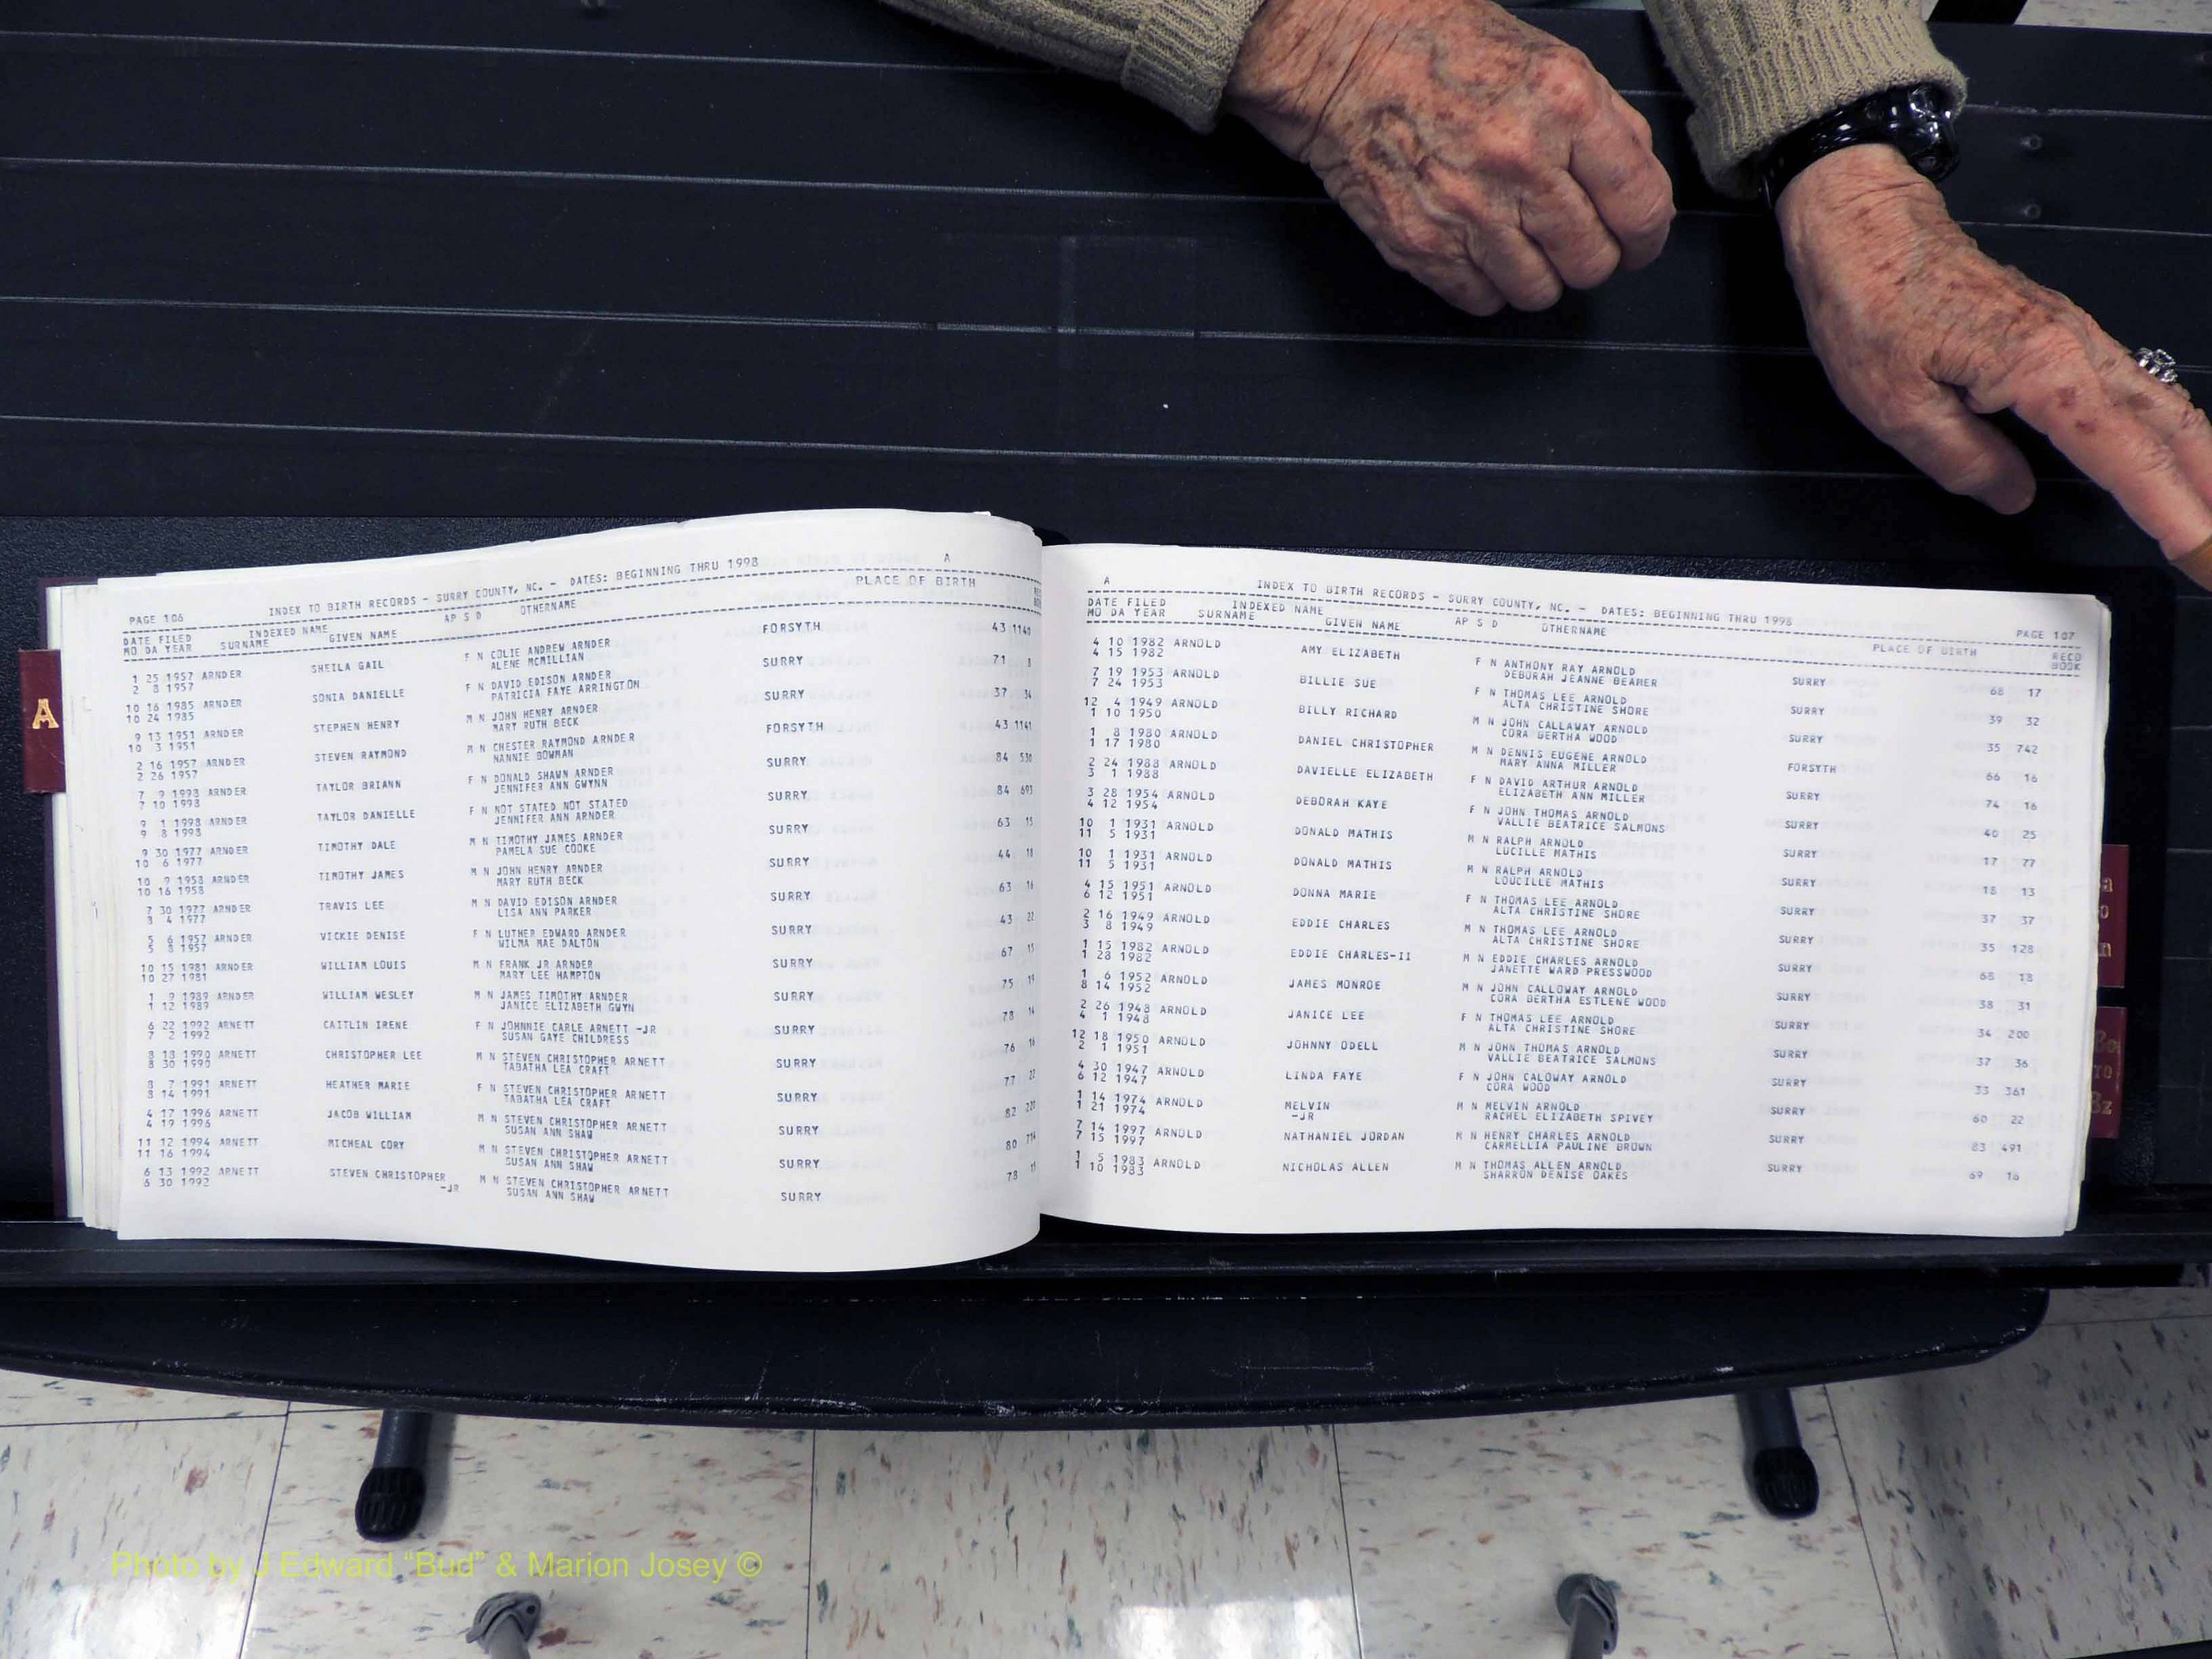 A
PAGE 106 INDEX TO BIRTH RECORDS - SURRY COUNTY, NC. - DATES: BEGINNING THRU 1998 A
DATE FILED INDEXED NAME AP S D OTHERNAME PLACE OF BIRTH
MO DA YEAR SURNAME GIVEN NAME
1 25 1957 ARNDER SHEILA GAIL F N COLIE ANDREW ARNDER FORSYTH 43 1140
2 8 1957 ALENE MCMILLIAN
10 16 1985 ARNDER SONIA DANIELLE F N DAVID EDISON ARNDER SURRY 71
10 24 1985 PATRICIA FAYE ARRINGTON
9 13 1951 ARNDER STEPHEN HENRY M N JOHN HENRY ARNDER SURRY 37 34
10 3 1951 MARY RUTH BECK
2 16 1957 ARNDER STEVEN RAYMOND M N CHESTER RAYMOND ARNDER FORSYTH 43 1141
2 26 1957 NANNIE BOWMAN
7 9 1998 ARNDER TAYLOR BRIANN F N DONALD SHAWN ARNDER SURRY 84 530
7 10 1998 JENNIFER ANN GWYNN
9 1 1998 ARNDER TAYLOR DANIELLE F N NOT STATED NOT STATED SURRY 84 691
9 8 1998 JENNIFER ANN ARNDER
9 30 1977 ARNDER TIMOTHY DALE M N TIMOTHY JAMES ARNDER SURRY 63
10 6 1977 PAMELA SUE COOKE
10 9 1958 ARNDER TIMOTHY JAMES M N JOHN HENRY ARNDER SURRY 44
10 16 1958 MARY RUTH BECK
7 30 1977 ARNDER TRAVIS LEE M N DAVID EDISON ARNDER SURRY 63
8 4 1977 LISA ANN PARKER
5 6 1957 ARNDER VICKIE DENISE F N LUTHER EDWARD ARNDER SURRY 43
5 8 1957 WILMA MAE DALTON
10 15 1981 ARNDER WILLIAM LOUIS M N FRANK JR ARNDER SURRY 67
10 27 1981 MARY LEE HAMPTON
1 9 1989 ARNDER WILLIAM WESLEY M N JAMES TIMOTHY ARNDER SURRY 75
1 12 1989 JANICE ELIZABETH GWYN
6 22 1992 ARNETT CAITLIN IRENE F N JOHNNIE CARLE ARNETT -JR SURRY 78
7 2 1992 SUSAN GAYE CHILDRESS
8 18 1990 ARNETT CHRISTOPHER LEE M N STEVEN CHRISTOPHER ARNETT SURRY 76
8 30 1990 TABATHA LEA CRAFT
8 7 1991 ARNETT HEATHER MARIE F N STEVEN CHRISTOPHER ARNETT SURRY 77
8 14 1991 TABATHA LEA CRAFT
4 17 1996 ARNETT JACOB WILLIAM M N STEVEN CHRISTOPHER ARNETT SURRY 82
4 19 1996 SUSAN ANN SHAW
11 12 1994 ARNETT MICHEAL CORY M N STEVEN CHRISTOPHER ARNETT SURRY 80
11 16 1994 SUSAN ANN SHAW
6 13 1992 ARNETT STEVEN CHRISTOPHER M N STEVEN CHRISTOPHER ARNETT SURRY 78
6 30 1992 -JR SUSAN ANN SHAW
A INDEX TO BIRTH RECORDS - SURRY COUNTY, NC. - DATES: BEGINNING THRU 1998 PAGE 107
DATE FILED INDEXED NAME AP S D OTHERNAME PLACE OF BIRTH RECD
MO DA YEAR SURNAME GIVEN NAME BOOK
4 10 1982 ARNOLD AMY ELIZABETH F N ANTHONY RAY ARNOLD SURRY 68 17
4 15 1982 DEBORAH JEANNE BEAMER
7 19 1953 ARNOLD BILLIE SUE F N THOMAS LEE ARNOLD SURRY 39 32
7 24 1953 ALTA CHRISTINE SHORE
12 4 1949 ARNOLD BILLY RICHARD M N JOHN CALLAWAY ARNOLD SURRY 35 742
1 10 1950 CORA BERTHA WOOD
1 8 1980 ARNOLD DANIEL CHRISTOPHER M N DENNIS EUGENE ARNOLD FORSYTH 66 16
1 17 1980 MARY ANNA MILLER
2 24 1988 ARNOLD DAVIELLE ELIZABETH F N DAVID ARTHUR ARNOLD SURRY 74 16
3 1 1988 ELIZABETH ANN MILLER
3 28 1954 ARNOLD DEBORAH KAYE F N JOHN THOMAS ARNOLD SURRY 40 25
4 12 1954 VALLIE BEATRICE SALMONS
10 1 1931 ARNOLD DONALD MATHIS M N RALPH ARNOLD SURRY 17 77
11 5 1931 LUCILLE MATHIS
10 1 1931 ARNOLD DONALD MATHIS M N RALPH ARNOLD SURRY 18 13
11 5 1931 LOUCILLE MATHIS
4 15 1951 ARNOLD DONNA MARIE F N THOMAS LEE ARNOLD SURRY 37 37
6 12 1951 ALTA CHRISTINE SHORE
2 16 1949 ARNOLD EDDIE CHARLES M N THOMAS LEE ARNOLD SURRY 35 128
3 8 1949 ALTA CHRISTINE SHORE
1 15 1982 ARNOLD EDDIE CHARLES-II M N EDDIE CHARLES ARNOLD SURRY 68 18
1 28 1982 JANETTE WARD PRESSWOOD
1 6 1952 ARNOLD JAMES MONROE M N JOHN CALLOWAY ARNOLD SURRY 38 31
8 14 1952 CORA BERTHA ESTLENE WOOD
2 26 1948 ARNOLD JANICE LEE F N THOMAS LEE ARNOLD SURRY 34 200
4 1 1948 ALTA CHRISTINE SHORE
12 18 1950 ARNOLD JOHNNY ODELL M N JOHN THOMAS ARNOLD SURRY 37 36
2 1 1951 VALLIE BEATRICE SALMONS
4 30 1947 ARNOLD LINDA FAYE F N JOHN CALOWAY ARNOLD SURRY 33 361
6 12 1947 CORA WOOD
1 14 1974 ARNOLD MELVIN M N MELVIN ARNOLD SURRY 60 22
1 21 1974 -JR RACHEL ELIZABETH SPIVEY
7 14 1997 ARNOLD NATHANIEL JORDAN M N HENRY CHARLES ARNOLD SURRY 83 491
7 15 1997 CARMELLIA PAULINE BROWN
1 5 1983 ARNOLD NICHOLAS ALLEN M N THOMAS ALLEN ARNOLD SURRY 69 16
1 10 1983 SHARRON DENISE OAKES
Photo by J Edward "Bud" & Marion Josey ©